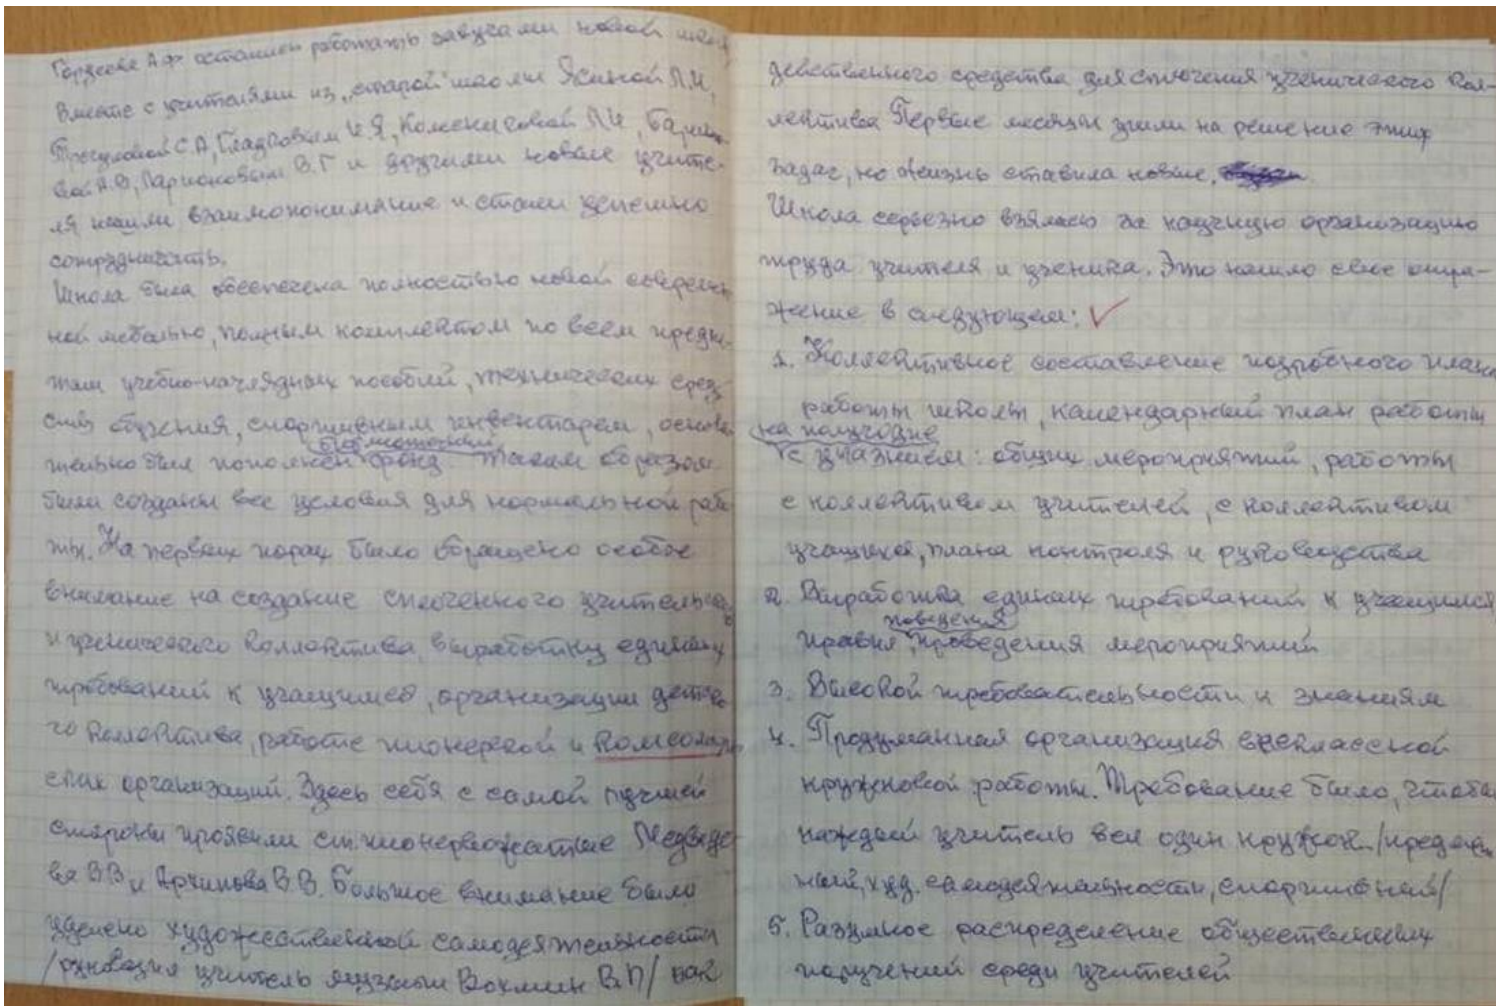 Гордеева А.Ф остались работать завучами новой
Вместе с учителями из „старой" школы Ясиной Л.И,
С.А, Гладковым И.Я, Л.И,
В.Г и другими новые учите-
ля нашли взаимопонимание и стали успешно
сотрудничать.
Школа была обеспечена полностью новой современ
ной мебелью, полным комплектом по всем предме-
там учебно-наглядных пособий, технических сред-
ств обучения, спортивным инвентарем, основа
тельно был пополнен библиотечный фонд. Таким образом
были созданы все условия для нормальной рабо
ты. На первых порах было обращено особое
внимание на создание сплоченного учительского
и ученического коллектива, выработку единых
требований к учащимся, организации детско
го коллектива, работе пионерской и комсомоль
ских организаций. Здесь себя с самой лучшей
стороны проявили ст. пионервожатые Медведе
ва В.В. и Архипова В.В. Большое внимание было
уделено художественной самодеятельности
/руководил учитель музыки Вохмин В.П/ как
действенного средства для сплочения ученического кол-
лектива. Первые месяцы ушли на решение этих
задач, но жизнь ставила новые.
Школа серьезно взялась за научную организацию
труда учителя и ученика. Это нашло свое отра-
жение в следующем:
1. Коллективное составление подробного плана
работы школы, календарный план работы
на полугодие
с указанием: общих мероприятий, работы
с коллективом учителей, с коллективом
учащихся, плана контроля и руководства
2. Выработка единых требований к учащимся,
правил поведения, проведения мероприятий
3. Высокой требовательности к знаниям
4. Продуманная организация внеклассной
кружковой работы. Требование было, чтобы
каждый учитель вел один кружок /предмет
ный, худ. самодеятельности, спортивный/
5. Разумное распределение общественных
поручений среди учителей